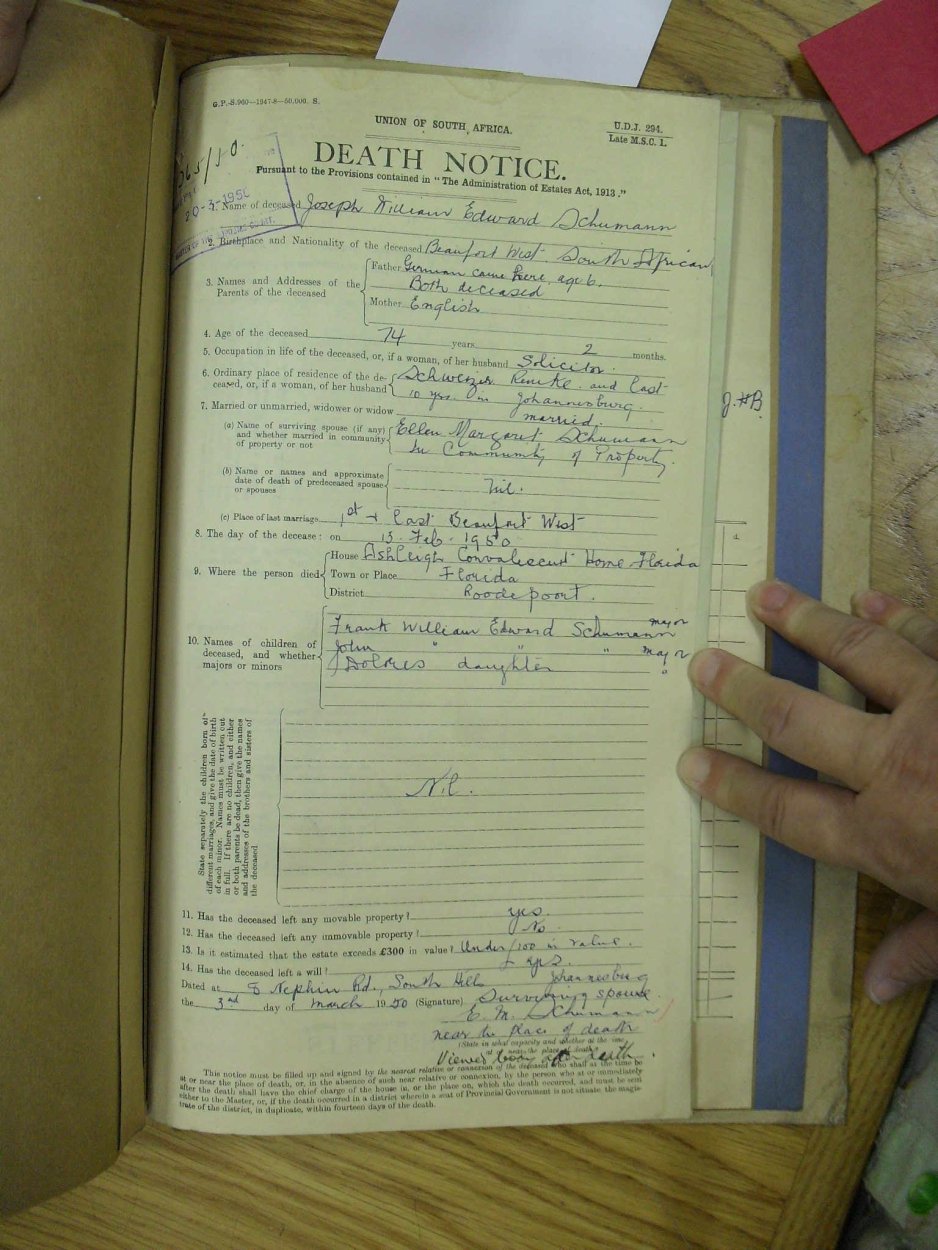 G.P.-S.960—1947-8—50,000. S.
UNION OF SOUTH AFRICA.
U.D.J. 294.
Late M.S.C. 1.
DEATH NOTICE.
Pursuant to the Provisions contained in "The Administration of Estates Act, 1913."
20-3-1950
1. Name of deceased Joseph William Edward Schumann
2. Birthplace and Nationality of the deceased Beaufort West South African
3. Names and Addresses of the Parents of the deceased
Father German came here age 6.
Both deceased
Mother English
4. Age of the deceased 74 years 2 months.
5. Occupation in life of the deceased, or, if a woman, of her husband Solicitor.
6. Ordinary place of residence of the deceased, or, if a woman, of her husband
Schweizer Reneke and last
10 yrs. in Johannesburg.
7. Married or unmarried, widower or widow married.
(a) Name of surviving spouse (if any) and whether married in community of property or not
Ellen Margaret Schumann
In Community of Property.
(b) Name or names and approximate date of death of predeceased spouse or spouses
Nil.
(c) Place of last marriage 1st + last Beaufort West
8. The day of the decease: on 13 Feb. 1950
9. Where the person died
House Ashleigh Convalescent Home Florida
Town or Place Florida
District Roodepoort.
10. Names of children of deceased, and whether majors or minors
Frank William Edward Schumann major
John " " major
Dolores daughter "
State separately the children born of different marriages, and give the date of birth of each minor. Names must be written out in full. If there are no children, and either or both parents be dead, then give the names and addresses of the brothers and sisters of the deceased
Nil.
11. Has the deceased left any movable property? yes.
12. Has the deceased left any unmovable property? No.
13. Is it estimated that the estate exceeds £300 in value? Under £100 in value.
14. Has the deceased left a will? yes.
Dated at 8 Nephin Rd., South Hills Johannesburg
the 3rd day of March 1950 (Signature) Surviving spouse
E. M. Schumann
near the place of death
(State in what capacity and whether at the time at or near the place of death)
Viewed body after death.
This notice must be filled up and signed by the nearest relative or connexion of the deceased who shall at the time be
at or near the place of death, or, in the absence of such near relative or connexion, by the person who at or immediately
after the death shall have the chief charge of the house in, or the place on, which the death occurred, and must be sent
either to the Master, or, if the death occurred in a district wherein a seat of Provincial Government is not situate, the magis-
trate of the district, in duplicate, within fourteen days of the death.